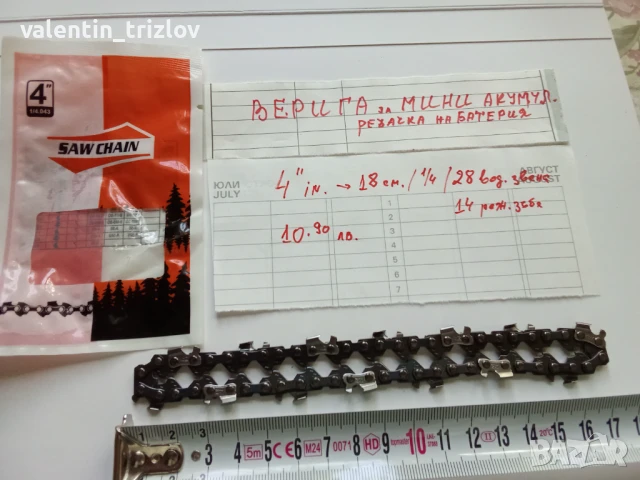 valentin_trizlov
4"
1/4.043
SAW CHAIN
ВЕРИГА за МИНИ АКУМУЛ.
РЕЗАЧКА НА БАТЕРИЯ
ЮЛИ
JULY
АВГУСТ
4" in. → 18 см. / 1/4 / 28 вод. звена
14 реж. зъба
10.90 лв.
1
2
3
4
5
6
7
3 4 5m CE 6 M24 7 0071 8 HD 9 10 11 12 II 13 14 20°C 15 16 17 18 19
BAZAR